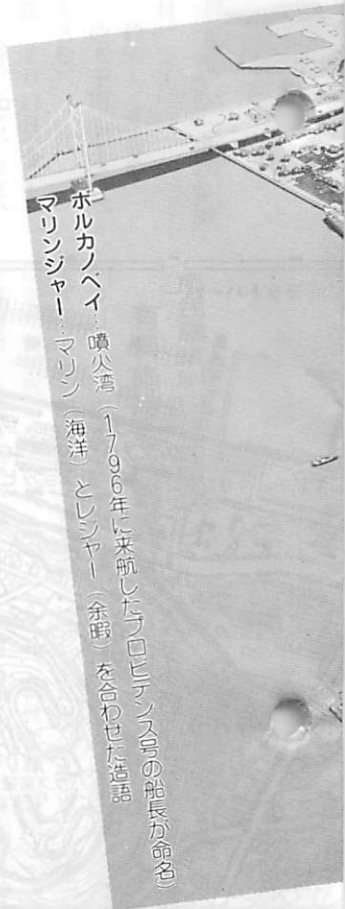 ボルカノベイ…噴火湾（1796年に来航したプロビデンス号の船長が命名）
マリンジャー…マリン（海洋）とレジャー（余暇）を合わせた造語